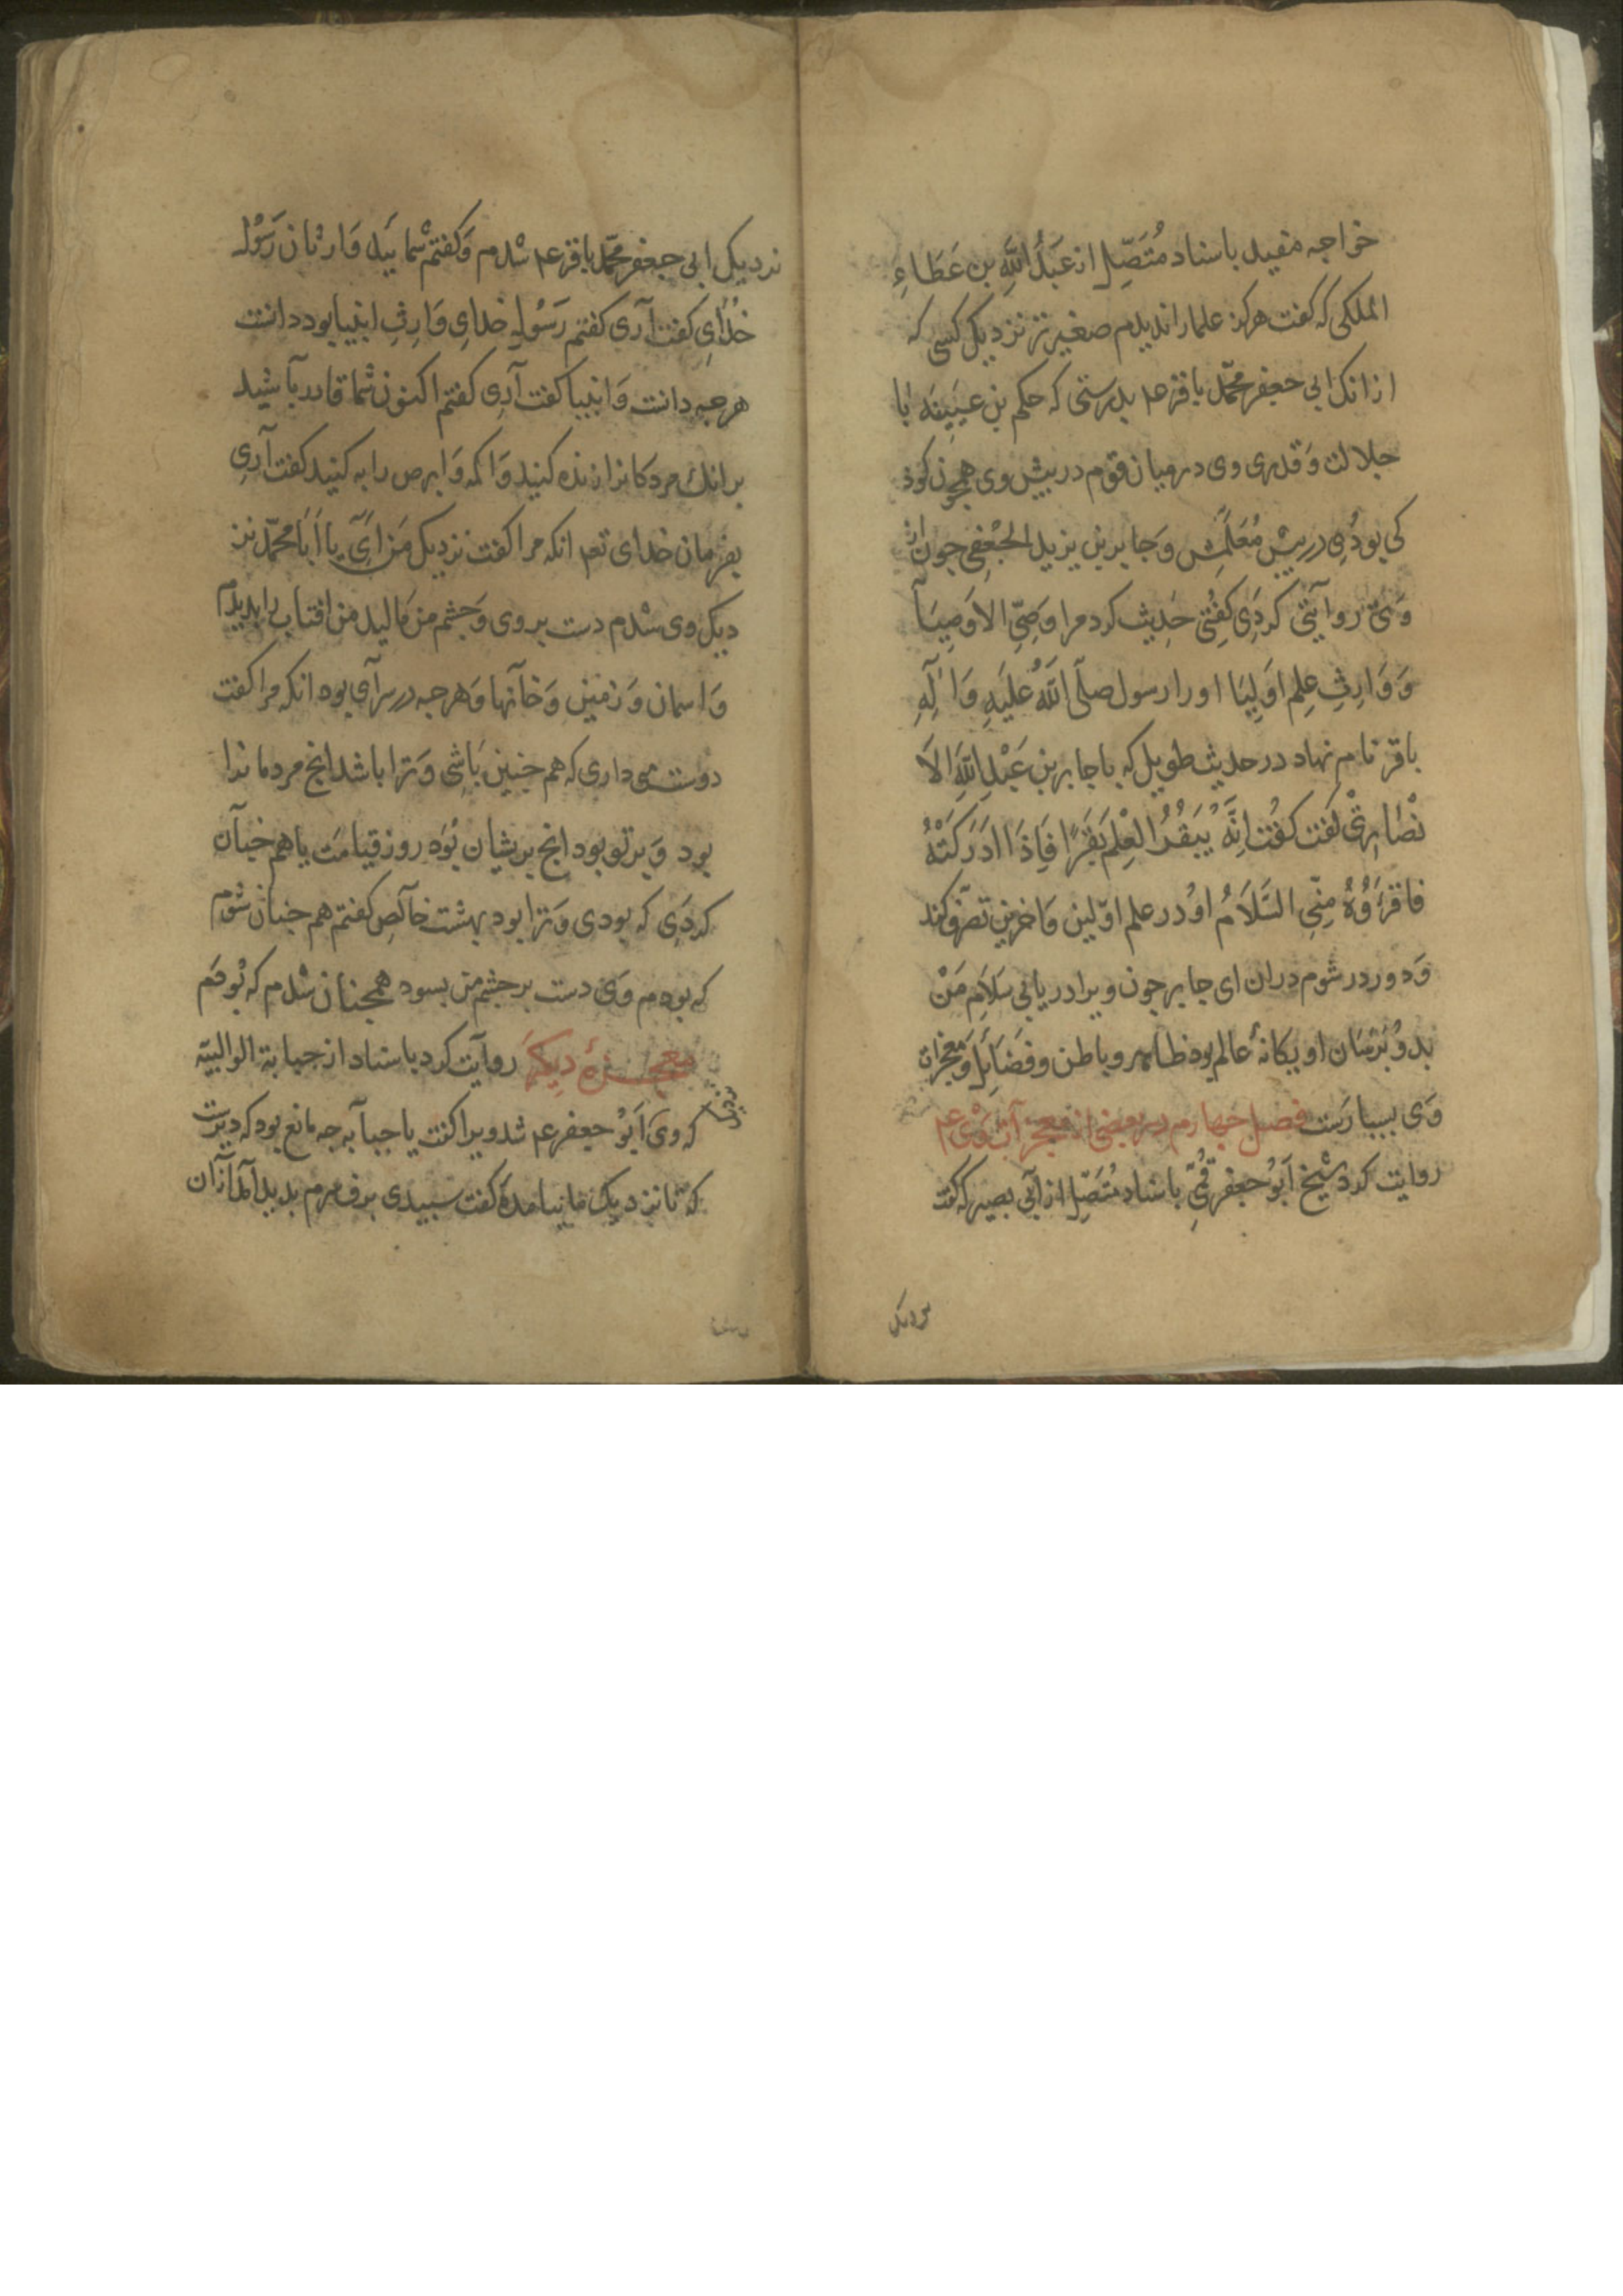 خواجه مفید باسناد مُتَصِّل از عَبدُ اللهِ بن عَطَاءِ
الملکی که کفت هرکز علما را ندیدم صغیرتر نزدیک کسی که
از انک ابی جعفر محمّد باقر عم بدرستی که حکم بن عیینه با
جلالت وَقدری وی در میان قوم در پیش وی همچون کوذ
کی بودُی در پیش مُعَلِّمش وَجابر بن یزید الجُعْفِی جون از
وَیّ روایتی کردَی کفِتی حَدِیث کرد مرا وَصِّیِ الاَوصِیَآ
وَ وَارِثِ عِلمِ اوَلِیَا اورا رسول صلّی اللهُ عَلیَهِ وَاٰلَهِ
باقر نام نهاد در حدیث طویل که با جابر بن عَبْدِ اللهِ الاَ
نْصٰارِیّ کفت کفُت اِنَّهُ یُبَقُرُ الْعِلْمَ بَقَرًا فَاِذَا ادَرَکَتْهُ
فاقرَؤُهُ مِنّی السَّلاَمُ اوُ در علم اوّلین وَاخرین تصّرف کند
وَدوردر شوم دران ای جابر چون ویرا دریابی سَلاَمِ مَنْ
بدوُ بَرْسَان او یکانهٔ عالم بود ظاهر وباطن وفَضَایَل وَمعجزات
وَی بسیارَست فصل جهارم در بعضی از معجزآت وَیْ عم
روایت کرد شیْخ اَبوُ جعفر قُمّیِ باسناد مُتَصِّل از اَبی بصیر که کفت
نزدیک
نزدیک ابی جعفر محمّد باقر عم شدم وَکفتم شما یَید وَارثان رَسُوُل
خُدٰایِ کفت آری کفتم رَسُولِ خدایِ وَارِثِ انبیا بود دانست
هرجه دانست وَانبیا کفت آرِی کفتم اکنون شما قادر بآشید
برانک مردکانرا زنده کنید وَاکمه وَابرص را به کنید کفت آرِی
بفرمان خدای تعم انکه مرا کفت نزدیک مَن اَیّ یا اَبَا محمّد نز
دیک وی شدم دست بروی وَجشم من مَالید من افتاب را بدیدم
وَاسمان وَزمین وَخآنها وَهرجه در سرآی بود انکه مرا کفت
دوست می داری که هم جنین بَاشی وَترا باشد انج مردمانرا
بود وَبرتو بود انج بریشان بُوَد روز قیامَت یا هم جنآن
کردَی که بودی وَترا بود بهشت خآلِص کفتم هم جنان شوم
که بودم وَی دست بر جشم من بسود همجنان شدم که بُوذم
معجزهٔ دیکَر روآیت کرد باسناد از حبابة الوالبیّه
که وی اَبوُ جعفر عم شد ویرا کفت یا حبابه جه مانع بود که دیرست
که تا نزدیک ما نیامدهٔ کفت سبیدی برف سرم بدید آمد ازان